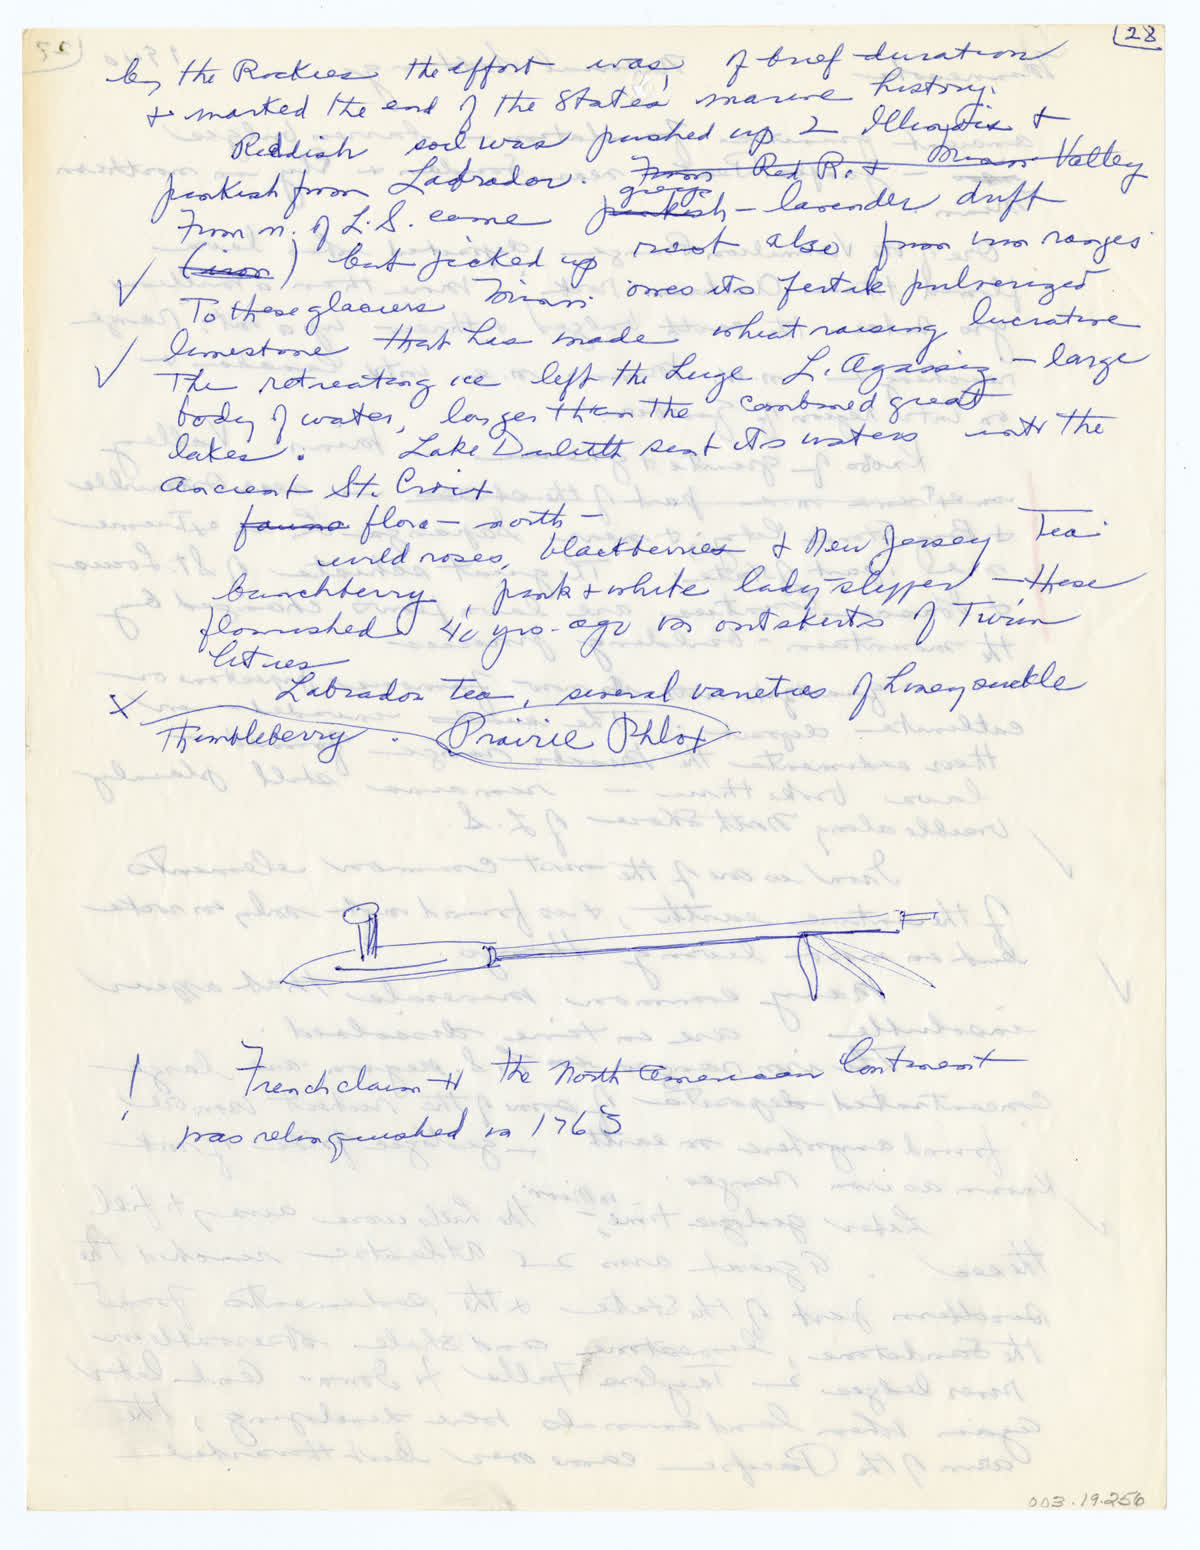 28
by the Rockies the effort was, of brief duration
& marked the end of the State's marine history.
Reddish soil was pushed up 2 &
pinkish from Labrador. From Red R. & Minn Valley
greyge
From n. of L.S. came pinkish - lavender drift
(iron) but picked up rust also from iron ranges
To these glaciers Minn. owes its fertile pulverized
limestone that has made wheat raising lucrative
The retreating ice left the huge L. Agassiz - large
body of water, larger than the combined great
lakes. Lake Duluth sent its waters into the
Ancient St. Croix
fauna flora - north -
wild roses, blackberries & New Jersey Tea
bunchberry, pink & white lady-slipper - these
flourished 40 yrs. ago on outskirts of Twin
Cities
x Labrador tea, several varieties of honeysuckle
Thimbleberry. Prairie Phlox
! French claim to the North American Continent
was relinquished in 1763
003.19.256